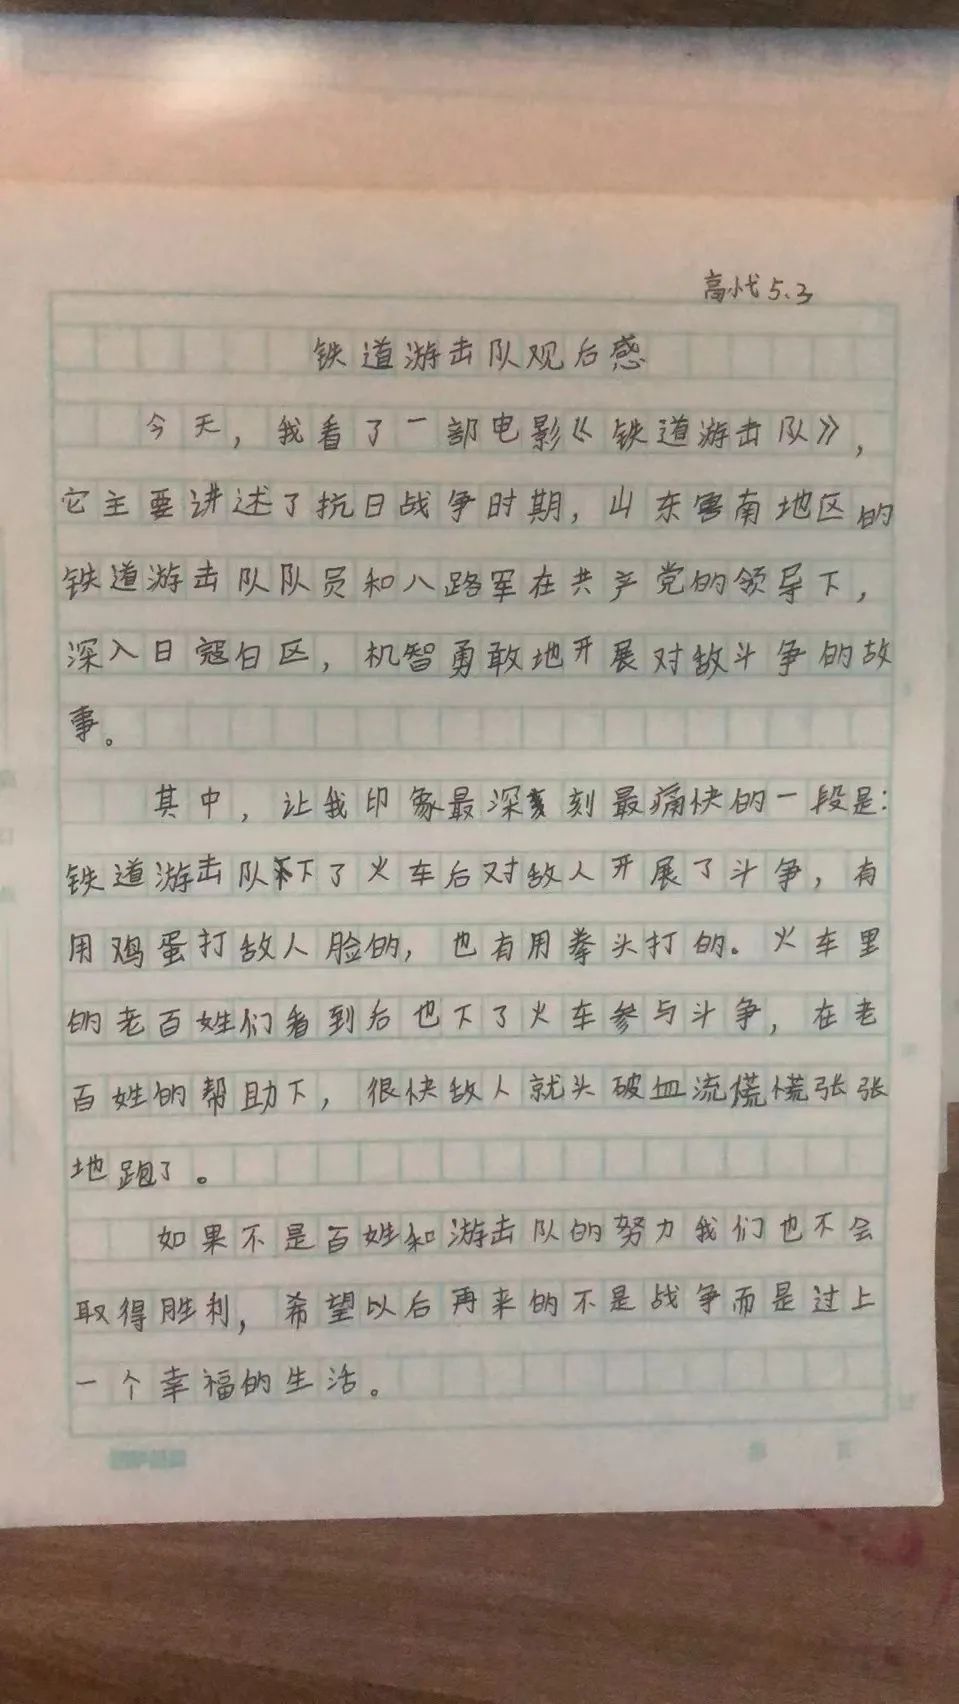 高小弋 5.3
铁道游击队观后感
今天，我看了一部电影《铁道游击队》，
它主要讲述了抗日战争时期，山东鲁南地区的
铁道游击队队员和八路军在共产党的领导下，
深入日寇白区，机智勇敢地开展对敌斗争的故
事。
其中，让我印象最深刻最痛快的一段是：
铁道游击队下了火车后对敌人开展了斗争，有
用鸡蛋打敌人脸的，也有用拳头打的。火车里
的老百姓们看到后也下了火车参与斗争，在老
百姓的帮助下，很快敌人就头破血流慌慌张张
地跑了。
如果不是百姓和游击队的努力我们也不会
取得胜利，希望以后再来的不是战争而是过上
一个幸福的生活。